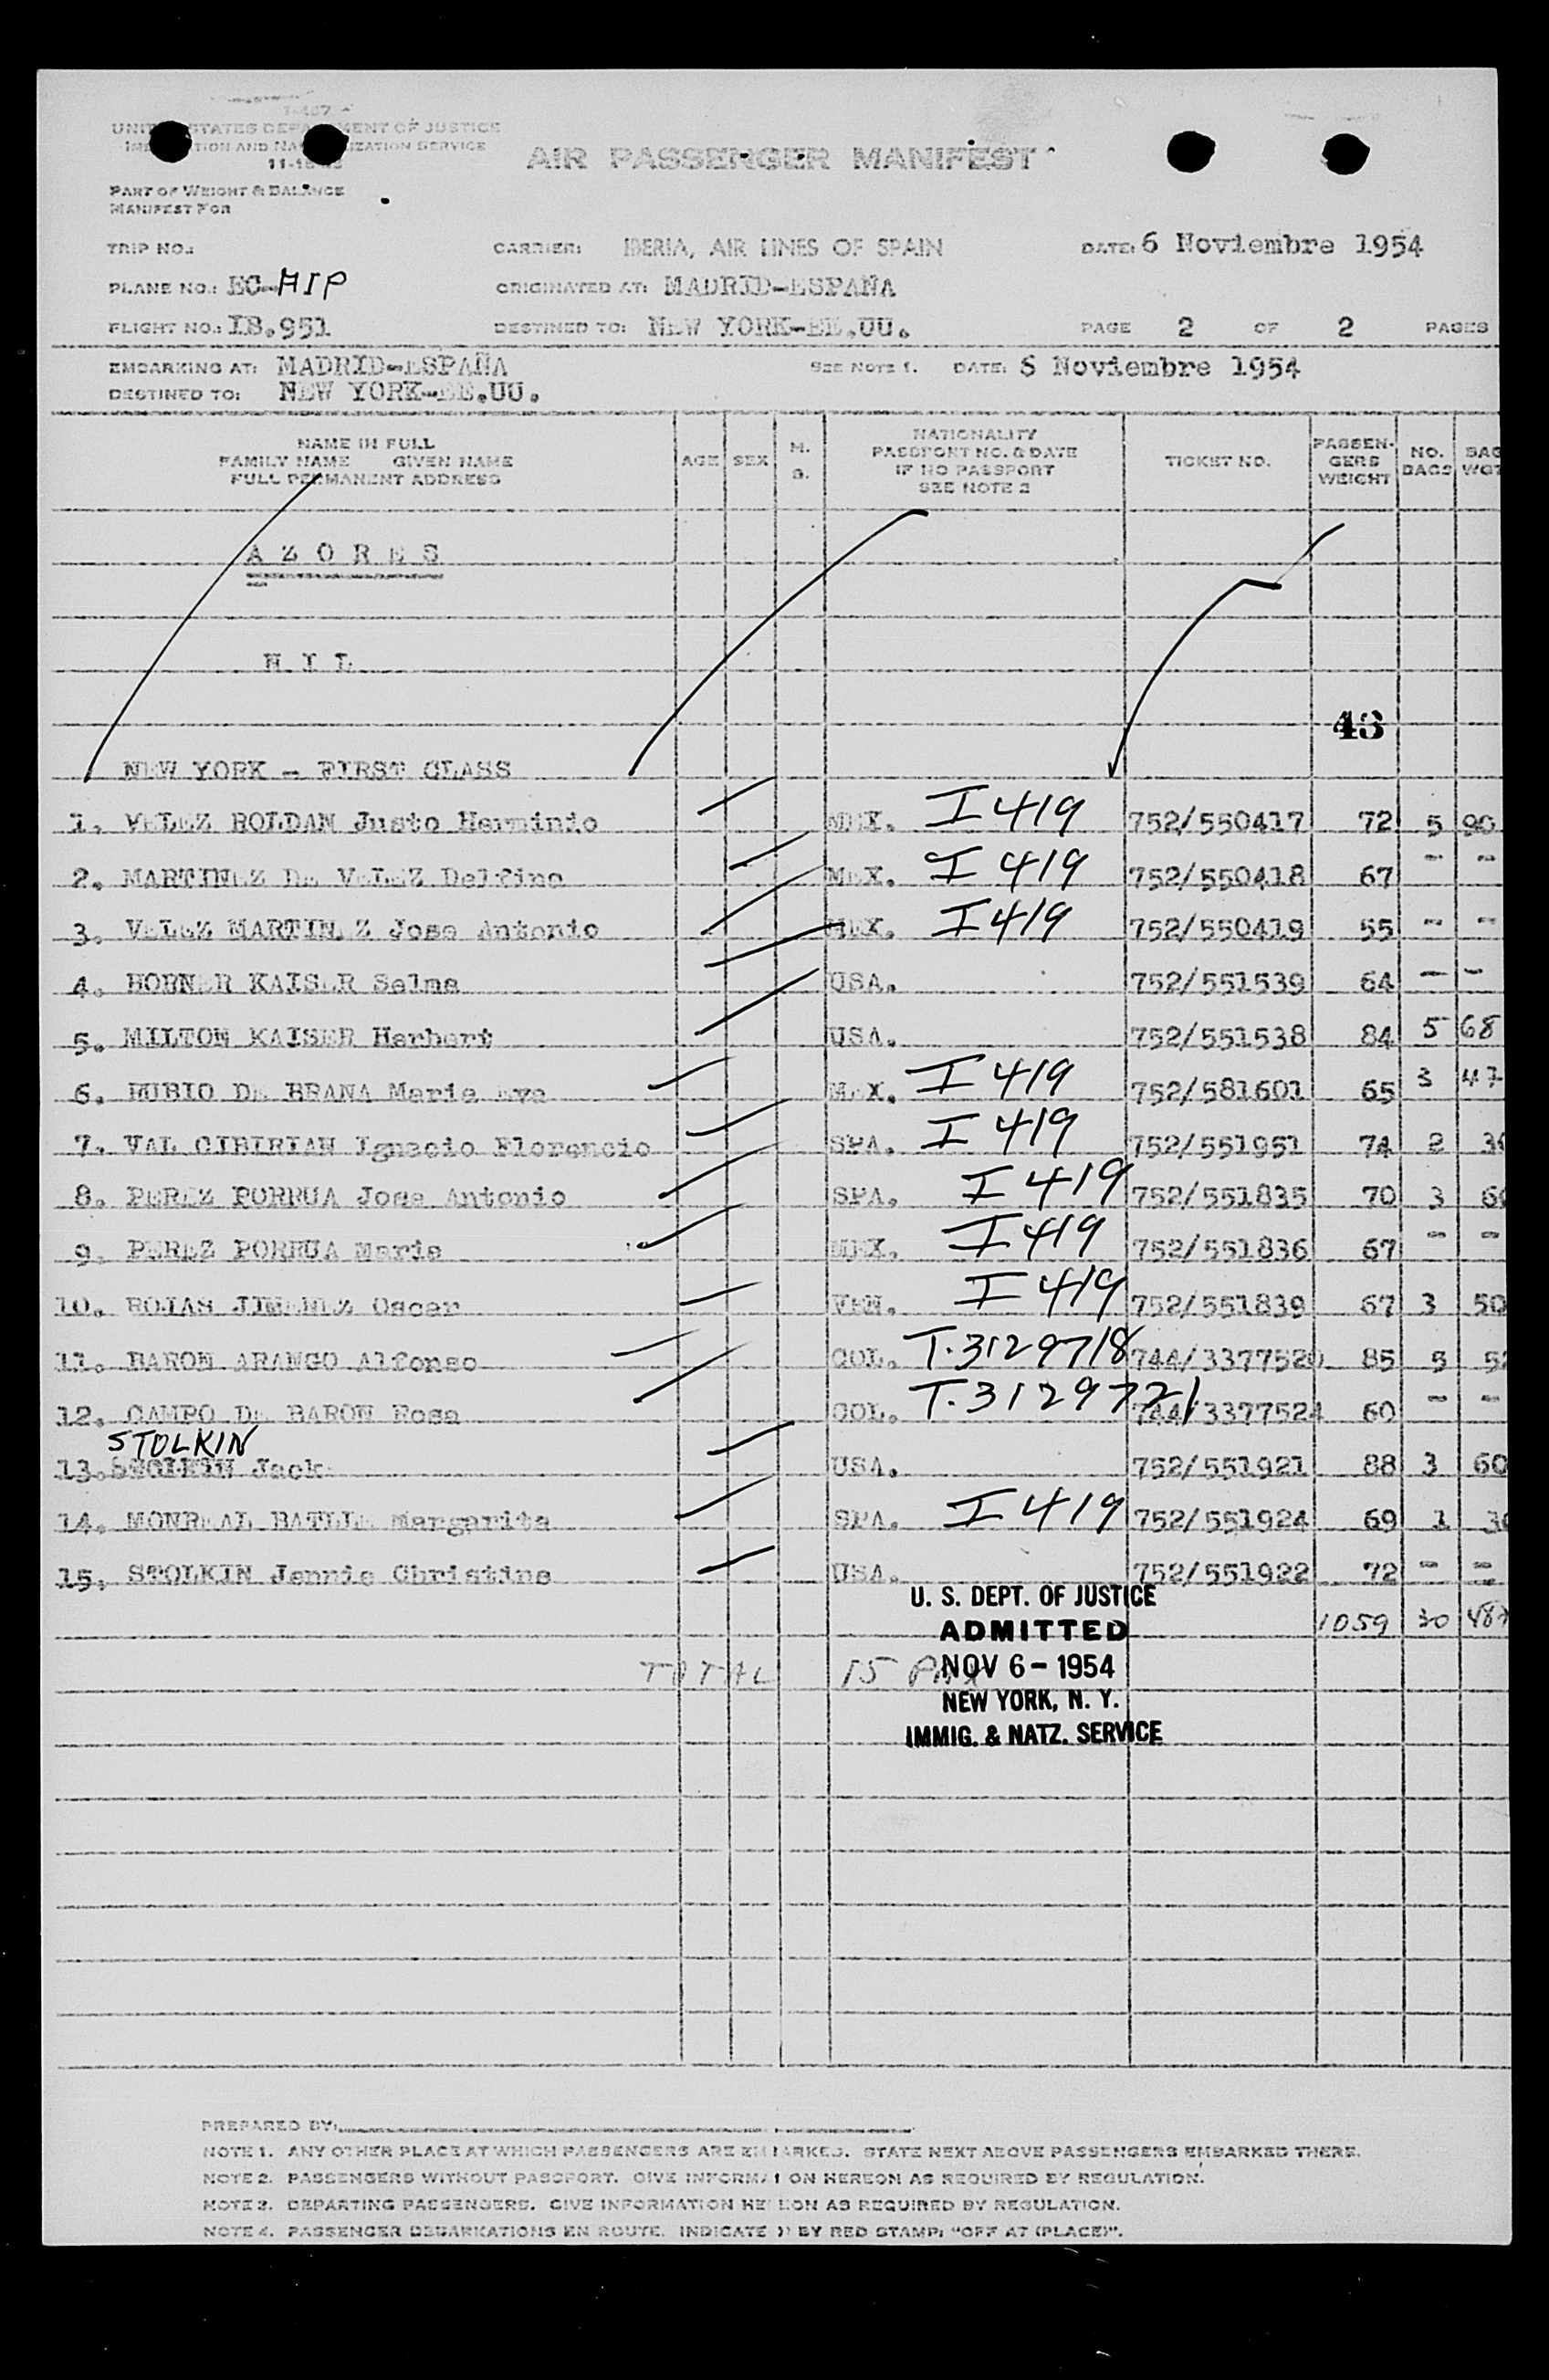 I-467
UNITED STATES DEPARTMENT OF JUSTICE
IMMIGRATION AND NATURALIZATION SERVICE
AIR PASSENGER MANIFEST
PART OF WEIGHT & BALANCE
MANIFEST FOR
TRIP NO.: CARRIER: IBERIA, AIR LINES OF SPAIN DATE: 6 Noviembre 1954
PLANE NO.: EC-AIP ORIGINATED AT: MADRID-ESPAÑA
FLIGHT NO.: IB.951 DESTINED TO: NEW YORK-EE.UU. PAGE 2 OF 2 PAGES
EMBARKING AT: MADRID-ESPAÑA SEE NOTE 1. DATE: 6 Noviembre 1954
DESTINED TO: NEW YORK-EE.UU.
NAME IN FULL
FAMILY NAME GIVEN NAME
FULL PERMANENT ADDRESS
AGE SEX M. S.
NATIONALITY
PASSPORT NO. & DATE
IF NO PASSPORT
SEE NOTE 2
TICKET NO.
PASSEN-
GERS
WEIGHT
NO.
BAGS
BAG
WGT
A Z O R E S
N I L
43
NEW YORK - FIRST CLASS
1. VELEZ ROLDAN Justo Herminio MEX. I 419 752/550417 72 5 90
2. MARTINEZ DE VELEZ Delfina MEX. I 419 752/550418 67 - -
3. VELEZ MARTINEZ Jose Antonio MEX. I 419 752/550419 55 - -
4. HORNER KAISER Selma USA. 752/551539 64 - -
5. MILTON KAISER Herbert USA. 752/551538 84 5 68
6. RUBIO DE BRANA Maria Eva MEX. I 419 752/581601 65 3 47
7. VAL CIBIRIAN Ignacio Florencio SPA. I 419 752/551951 74 2 30
8. PEREZ PORRUA Jose Antonio SPA. I 419 752/551835 70 3 60
9. PEREZ PORRUA Maria MEX. I 419 752/551836 67 - -
10. ROJAS JIMENEZ Oscar VEN. I 419 752/551839 67 3 50
11. BARON ARANGO Alfonso COL. T.3129718 744/3377520 85 5 52
12. CAMPO DE BARON Rosa COL. T.3129721 744/3377524 60 - -
STOLKIN
13. Jack USA. 752/551921 88 3 60
14. MONREAL BATLLE Margarita SPA. I 419 752/551924 69 1 30
15. STOLKIN Jennie Christine USA. 752/551922 72 - -
1059 30 487
TOTAL 15 PAX
U. S. DEPT. OF JUSTICE
ADMITTED
NOV 6 - 1954
NEW YORK, N. Y.
IMMIG. & NATZ. SERVICE
PREPARED BY:
NOTE 1. ANY OTHER PLACE AT WHICH PASSENGERS ARE EMBARKED. STATE NEXT ABOVE PASSENGERS EMBARKED THERE.
NOTE 2. PASSENGERS WITHOUT PASSPORT. GIVE INFORMATION HEREON AS REQUIRED BY REGULATION.
NOTE 3. DEPARTING PASSENGERS. GIVE INFORMATION HEREON AS REQUIRED BY REGULATION.
NOTE 4. PASSENGER DEBARKATIONS EN ROUTE. INDICATE BY RED STAMP: "OFF AT (PLACE)".